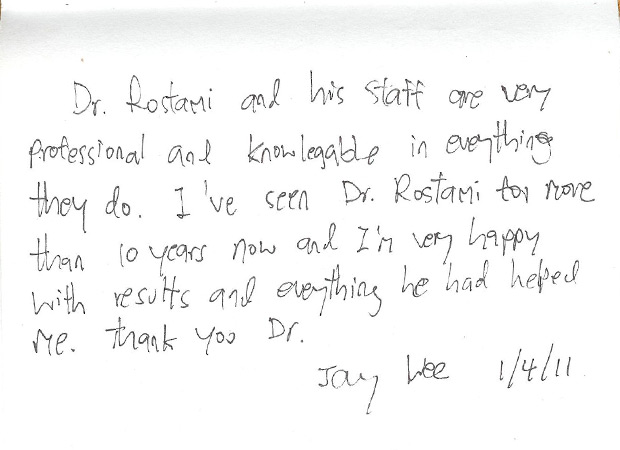 Dr. Rostami and his staff are very
professional and knowlegable in everything
they do. I've seen Dr. Rostami for more
than 10 years now and I'm very happy
with results and everything he had helped
me. thank you Dr.
Jay Lee 1/4/11